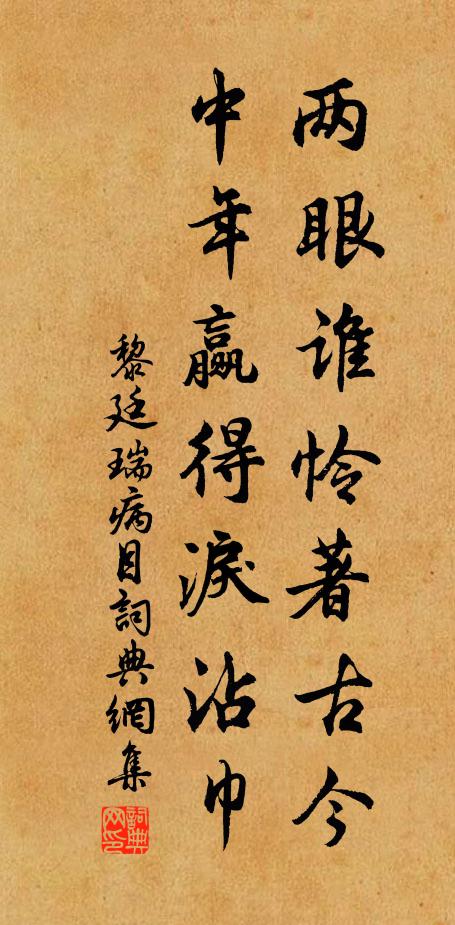 两眼谁怜著古今
中年赢得淚沾巾
黎廷瑞病目詞典網集
詞典网印